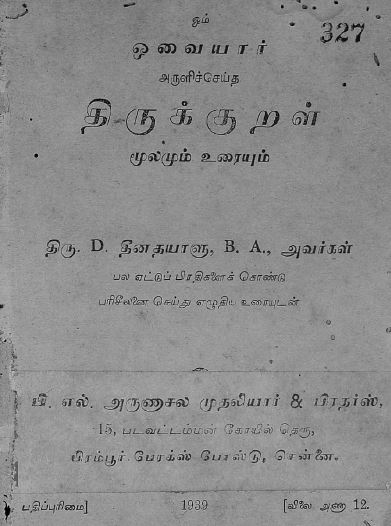 ஓம்
327
ஒளவையார்
அருளிச்செய்த
திருக்குறள்
மூலமும் உரையும்
திரு. D. தீனதயாளு, B. A., அவர்கள்
பல ஏட்டுப் பிரதிகளைக் கொண்டு
பரிசீலனை செய்து எழுதிய உரையுடன்
பி. எல். அருணாசல முதலியார் & பிரதர்ஸ்,
15, படவட்டம்மன் கோயில் தெரு,
பிரம்பூர் பேரக்ஸ் போஸ்டு, சென்னை.
பதிப்புரிமை] 1939 [விலை அணா 12.